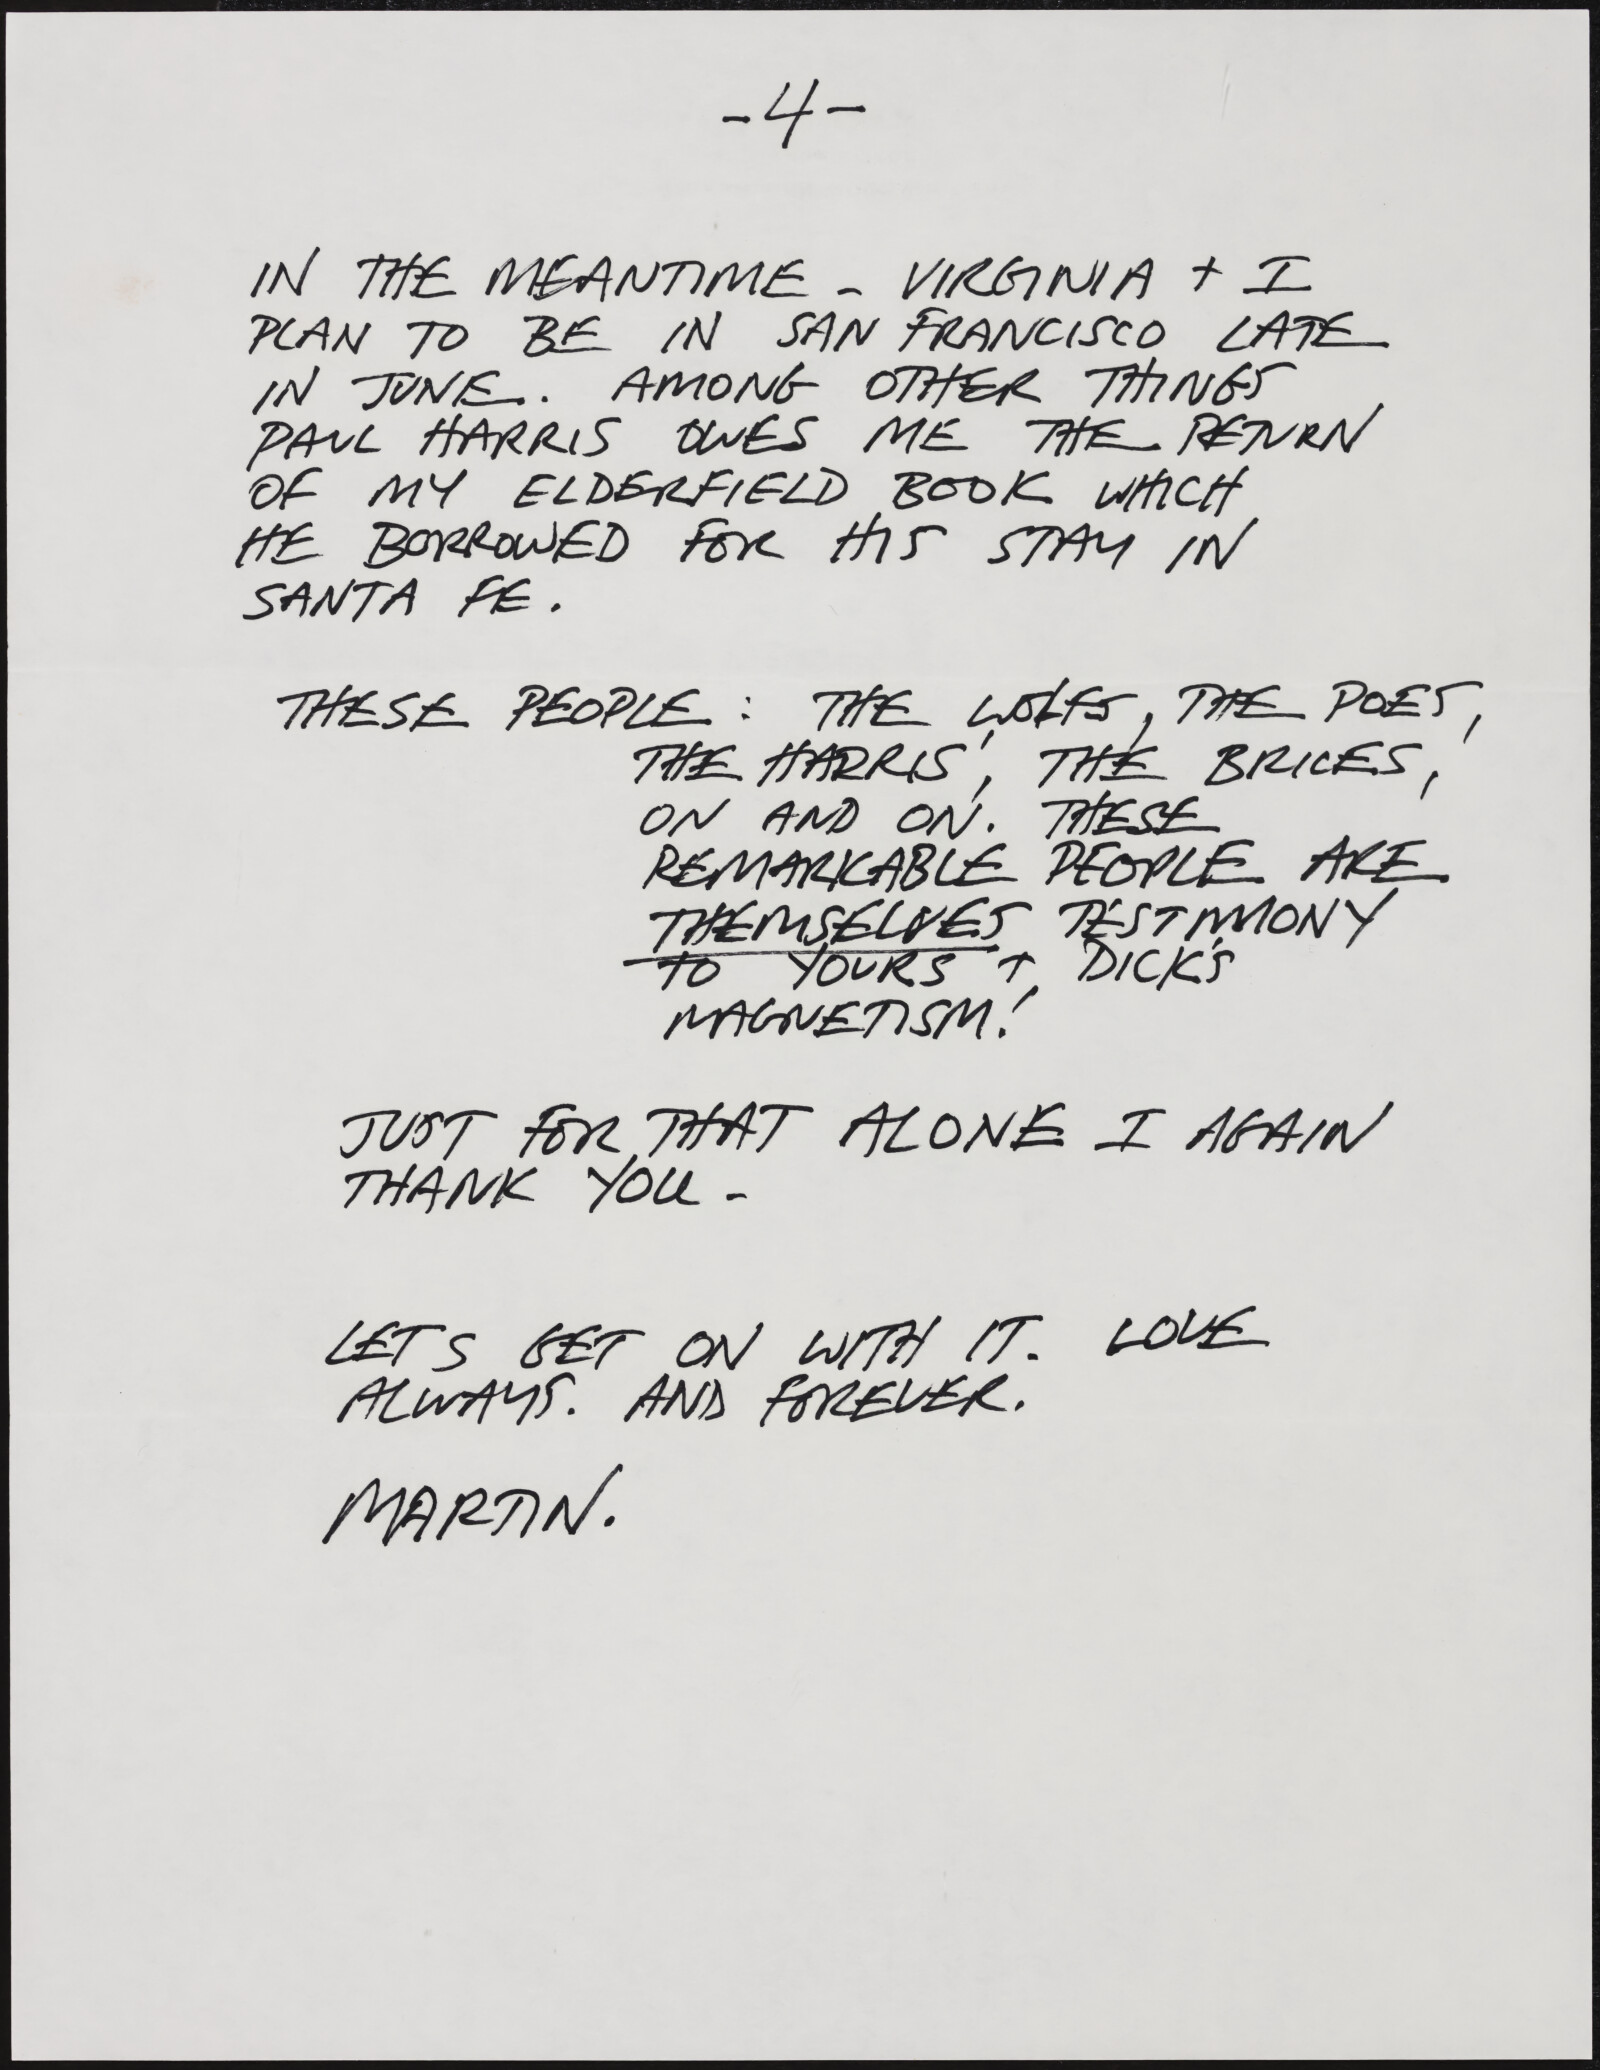 -4-
IN THE MEANTIME - VIRGINIA + I
PLAN TO BE IN SAN FRANCISCO LATE
IN JUNE. AMONG OTHER THINGS
PAUL HARRIS OWES ME THE RETURN
OF MY ELDERFIELD BOOK WHICH
HE BORROWED FOR HIS STAY IN
SANTA FE.
THESE PEOPLE: THE WOLFS, THE POES,
THE HARRIS', THE BRICES,
ON AND ON. THESE
REMARKABLE PEOPLE ARE
THEMSELVES TESTIMONY
TO YOURS + DICK'S
MAGNETISM!
JUST FOR THAT ALONE I AGAIN
THANK YOU -
LETS GET ON WITH IT. LOVE
ALWAYS. AND FOREVER.
MARTIN.